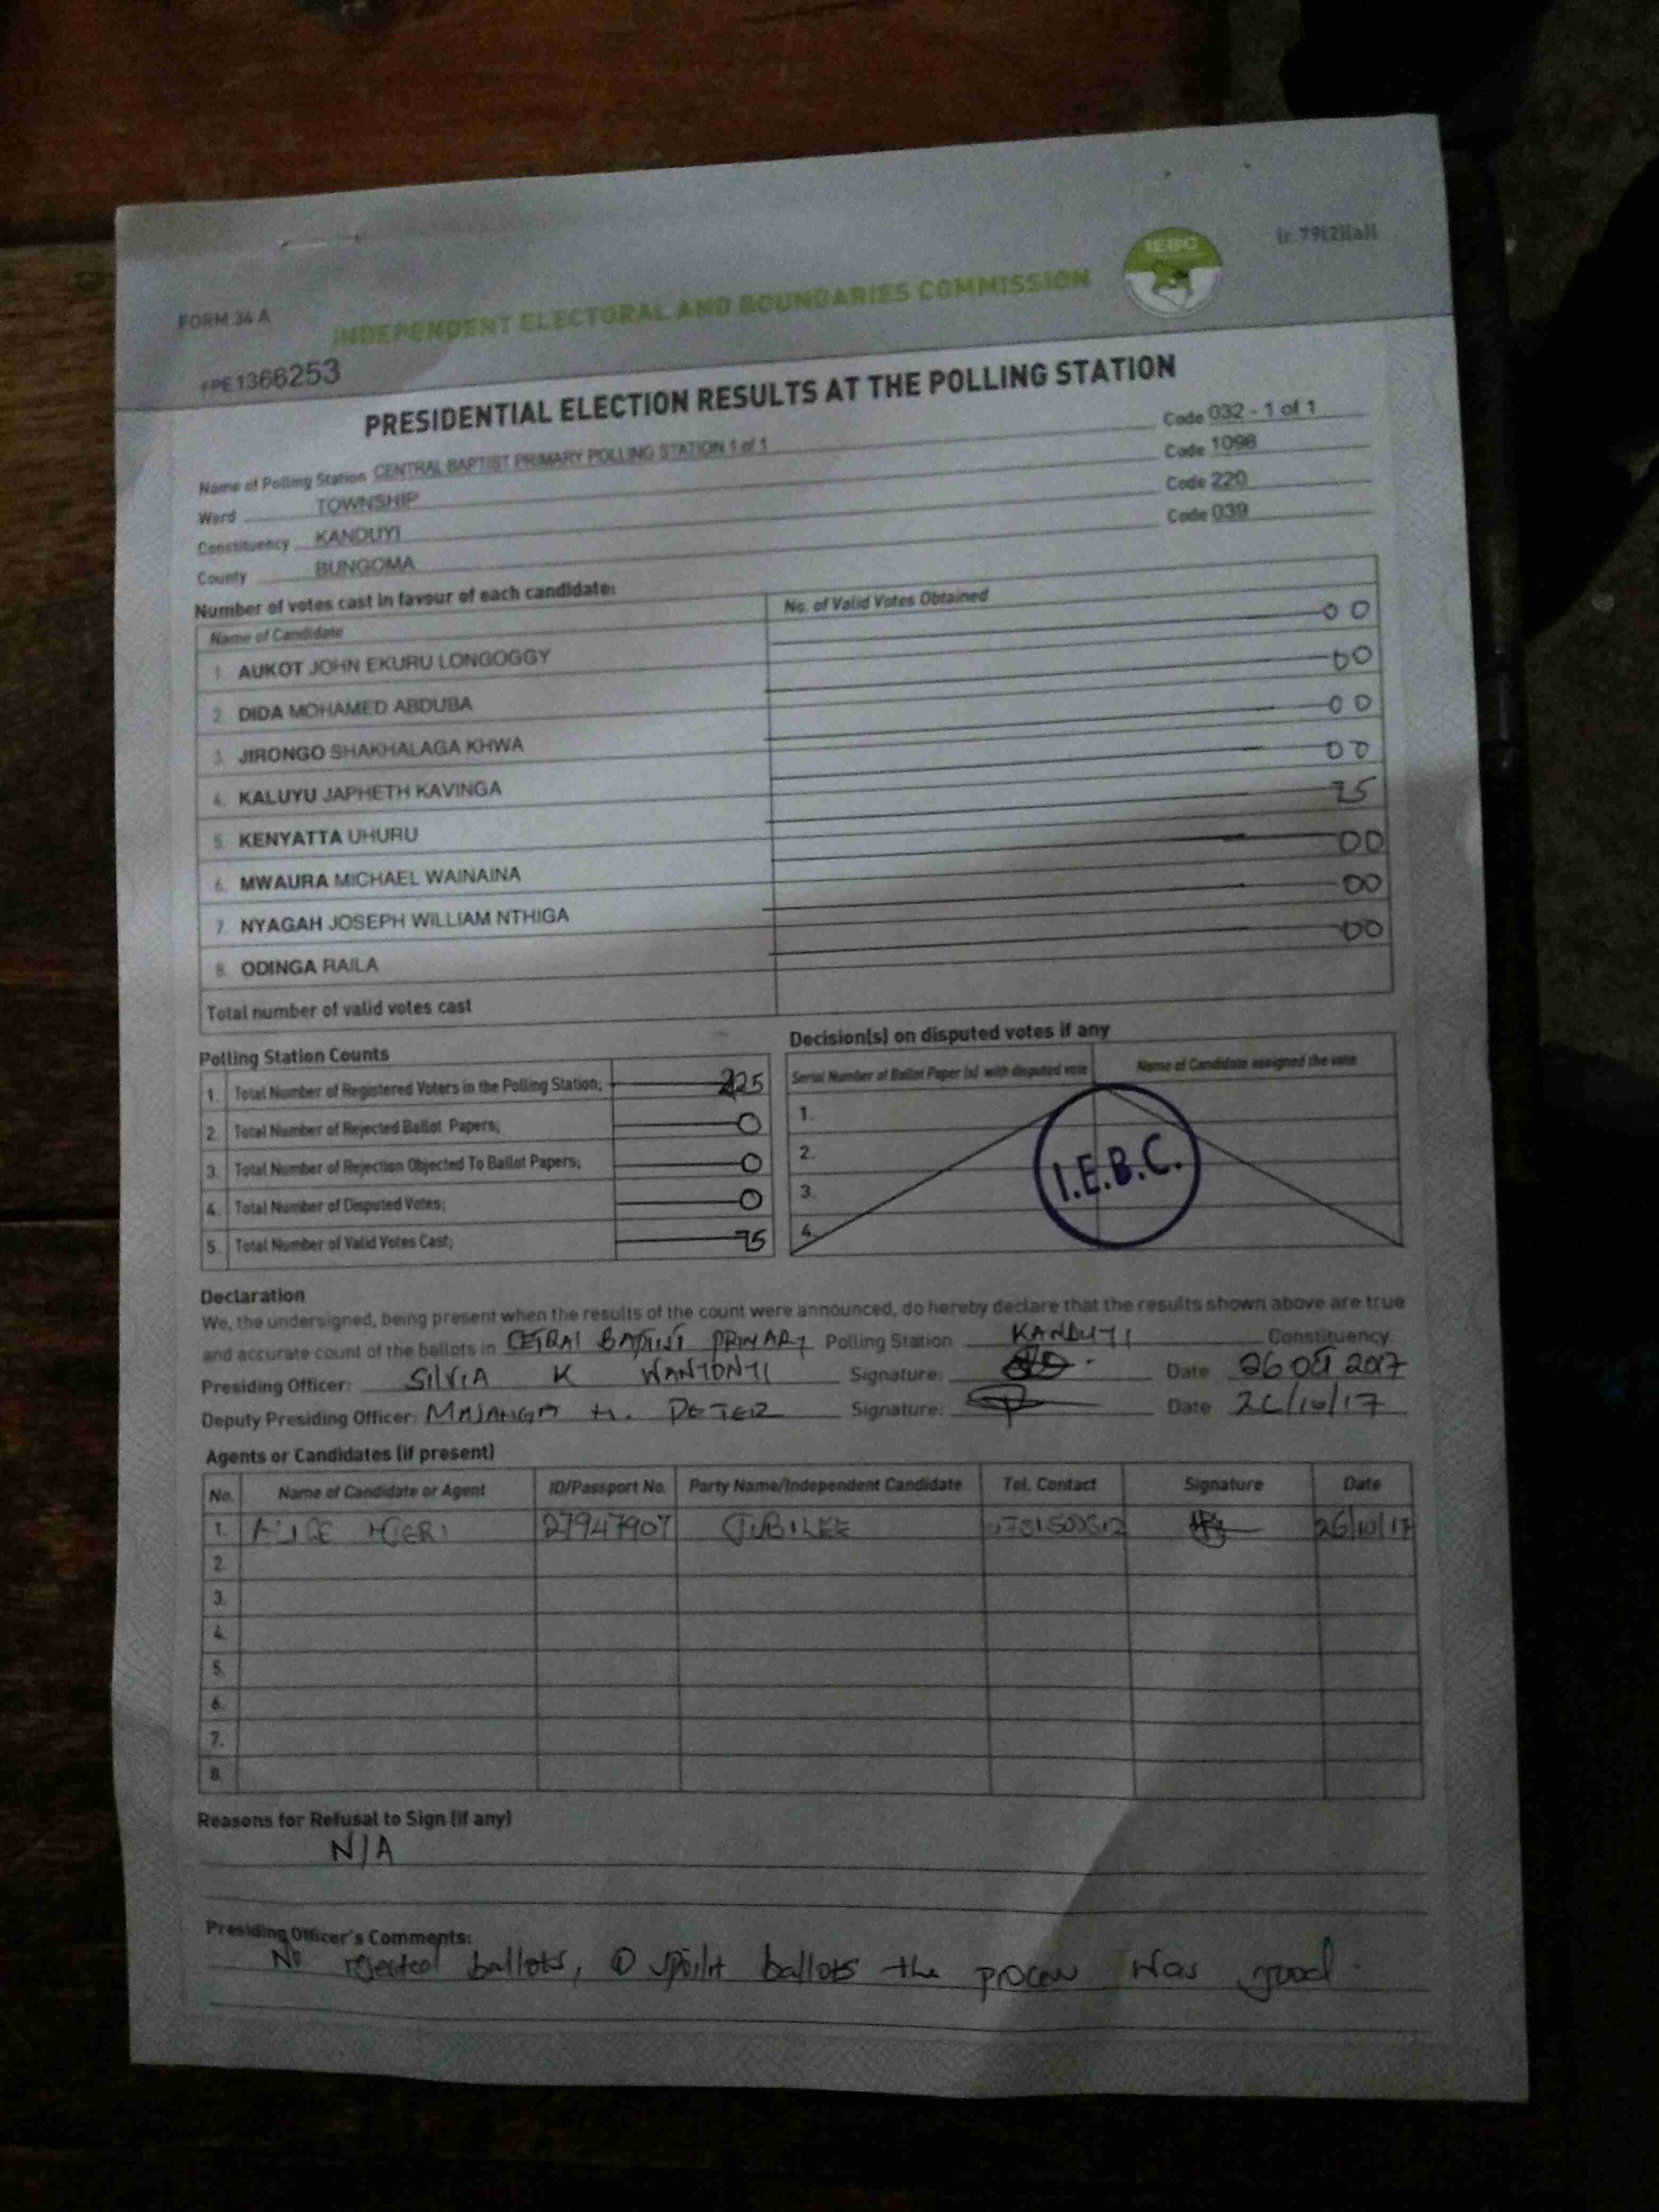 (r.79(2)(a))
FORM 34 A
INDEPENDENT ELECTORAL AND BOUNDARIES COMMISSION
IEBC
FPE1366253
PRESIDENTIAL ELECTION RESULTS AT THE POLLING STATION
Name of Polling Station CENTRAL BAPTIST PRIMARY POLLING STATION 1 of 1 Code 032 - 1 of 1
Ward TOWNSHIP Code 1098
Constituency KANDUYI Code 220
County BUNGOMA Code 039
Number of votes cast in favour of each candidate:
Name of Candidate No. of Valid Votes Obtained
1. AUKOT JOHN EKURU LONGOGGY 00
2. DIDA MOHAMED ABDUBA 00
3. JIRONGO SHAKHALAGA KHWA 00
4. KALUYU JAPHETH KAVINGA 00
5. KENYATTA UHURU 75
6. MWAURA MICHAEL WAINAINA 00
7. NYAGAH JOSEPH WILLIAM NTHIGA 00
8. ODINGA RAILA 00
Total number of valid votes cast
Polling Station Counts
1. Total Number of Registered Voters in the Polling Station; 225
2. Total Number of Rejected Ballot Papers; 0
3. Total Number of Rejection Objected To Ballot Papers; 0
4. Total Number of Disputed Votes; 0
5. Total Number of Valid Votes Cast; 75
Decision(s) on disputed votes if any
Serial Number of Ballot Paper (s) with disputed vote Name of Candidate assigned the vote
1.
2.
3.
4.
I.E.B.C.
Declaration
We, the undersigned, being present when the results of the count were announced, do hereby declare that the results shown above are true
and accurate count of the ballots in CETRAL BAPTIST PRIMARY Polling Station KANDUYI Constituency
Presiding Officer: SILVIA K WANYONYI Signature: Date 26 Oct 2017
Deputy Presiding Officer: H. PETER Signature: Date 26/10/17
Agents or Candidates (if present)
No. Name of Candidate or Agent ID/Passport No. Party Name/Independent Candidate Tel. Contact Signature Date
1. ALICE 27947907 JUBILEE 26/10/17
2.
3.
4.
5.
6.
7.
8.
Reasons for Refusal to Sign (if any)
N/A
Presiding Officer's Comments:
No rejected ballots, 0 spoilt ballots the process was good.